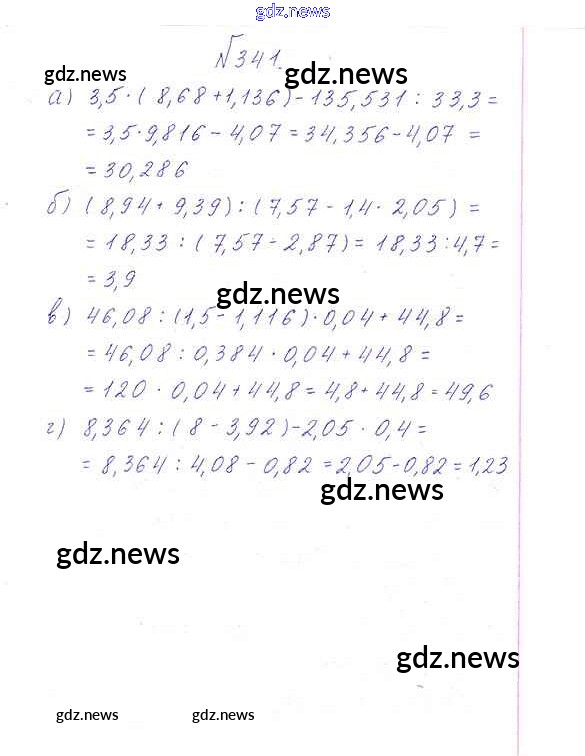 gdz.news
№341.
gdz.news gdz.news
а) 3,5·(8,68+1,136)-135,531:33,3=
=3,5·9,816-4,07=34,356-4,07=
=30,286
б) (8,94+9,39):(7,57-1,4·2,05)=
=18,33:(7,57-2,87)=18,33:4,7=
=3,9
gdz.news
в) 46,08:(1,5-1,116)·0,04+44,8=
=46,08:0,384·0,04+44,8=
=120·0,04+44,8=4,8+44,8=49,6
г) 8,364:(8-3,92)-2,05·0,4=
=8,364:4,08-0,82=2,05-0,82=1,23
gdz.news
gdz.news
gdz.news
gdz.news gdz.news